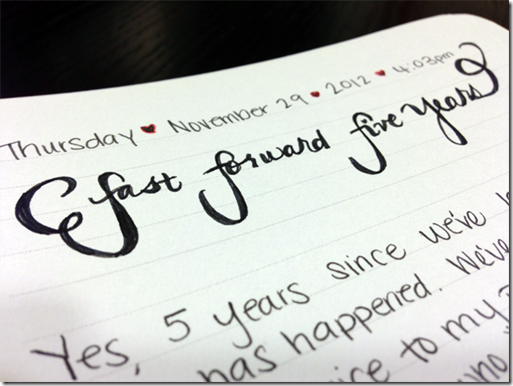 Thursday ♥ November 29 ♥ 2012 ♥ 4:03pm
fast forward five years
Yes, 5 years since we've
has happened. We've
to my